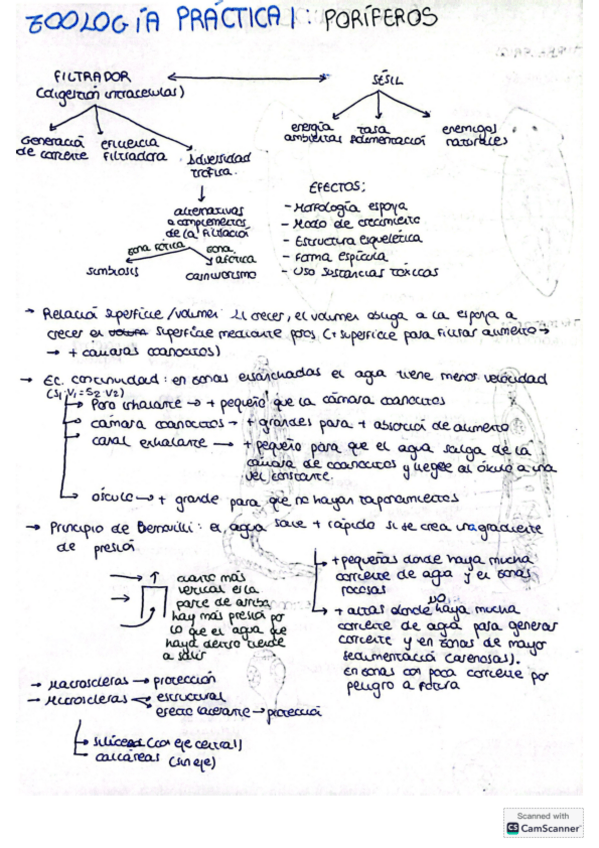 ZOOLOGÍA PRÁCTICA 1: PORÍFEROS
FILTRADOR
(digestión intracelular)
SÉSIL
Generación de corriente
eficiencia filtradora
Adversidad trófica
energía ambiental
tasa sedimentación
enemigos naturales
alternativas o complementos de la filtración
zona fótica
zona afótica
simbiosis
carnivorismo
EFECTOS:
- Morfología esponja
- Modo de crecimiento
- Estructura esquelética
- Forma espícula
- Uso sustancias tóxicas
→ Relación superficie/volumen: al crecer, el volumen obliga a la esponja a
crecer en superficie mediante poros (+ superficie para filtrar alimento →
→ + cámaras coanocitos)
→ Ec. continuidad: en zonas ensanchadas el agua tiene menor velocidad
(S1·V1 = S2·V2)
→ Poro inhalante → + pequeño que la cámara coanocitos
→ cámara coanocitos → + grandes para + absorción de alimento
→ canal exhalante → + pequeño para que el agua salga de la
cámara de coanocitos y llegue al ósculo a una
vel. constante.
→ ósculo → + grande para que no hayan taponamientos
→ Principio de Bernoulli: el agua sale + rápido si se crea un gradiente
de presión
cuanto más
vertical es la
parte de arriba,
hay más presión por
lo que el agua que
hay dentro tiende
a salir
→ + pequeñas donde haya mucha
corriente de agua y en zonas
rocosas
→ + altas donde no haya mucha
corriente de agua para generar
corriente y en zonas de mayor
sedimentación (arenosas).
En zonas con poca corriente por
peligro a rotura
→ Macroscleras → protección
→ Microscleras
estructural
efecto lacerante → protección
→ silíceas (con eje central)
→ calcáreas (sin eje)
Scanned with
CS CamScanner